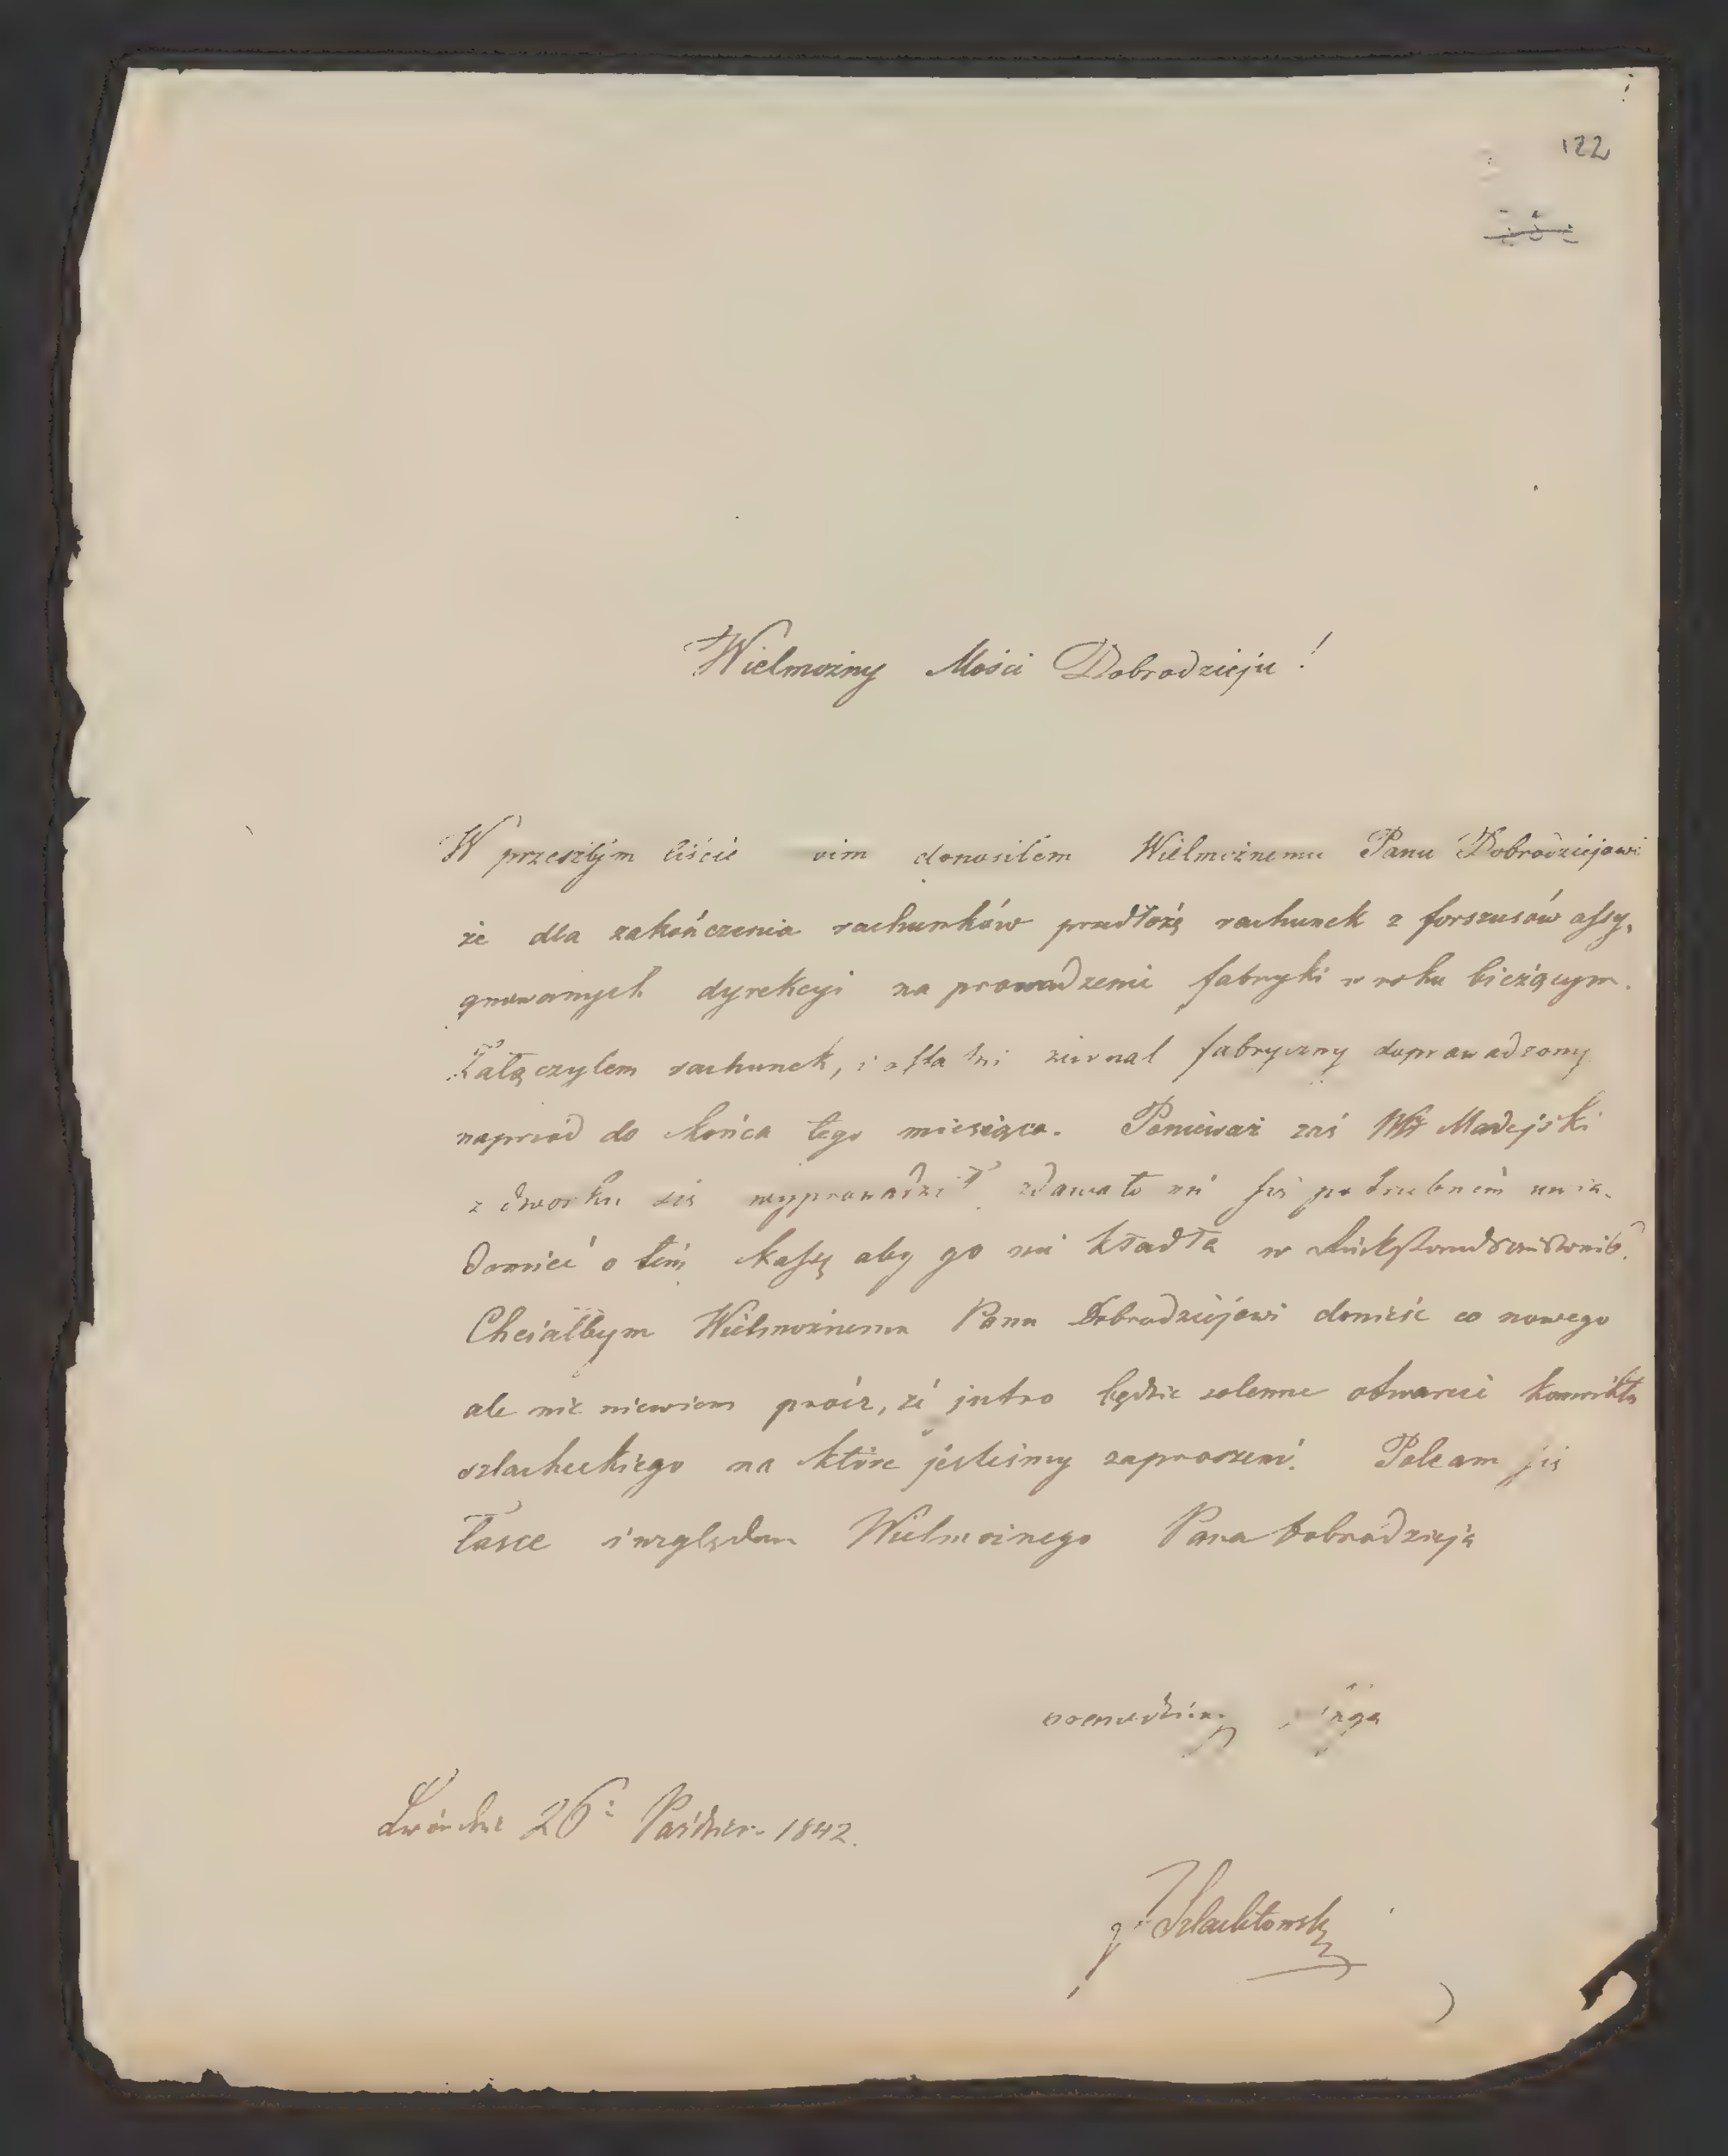 122
Wielmożny Mości Dobrodzieju!
W przeszłym liście donosiłem Wielmożnemu Panu Dobrodziejowi
że dla zakończenia rachunków przedłożę rachunek z forszusów assy,
gnowanych dyrekcyi na prowadzenie fabryki w roku bieżącym.
Załączyłem rachunek, i żurnal fabryczny doprowadzony
naprzód do końca tego miesiąca. Ponieważ zaś Madejski
z dworku się wyprowadził zdawało mi się potrzebném uwia,
domić o tém kassę aby go nie kładła w
Chciałbym Wielmożnemu Panu Dobrodziejowi donieść co nowego
ale nic niewiem prócz, że jutro będzie solenne otwarcie konwiktu
szlacheckiego na które jesteśmy zaproszeni. Polecam się
łasce i względom Wielmożnego Pana Dobrodzieja
26 Paździer. 1842.
Szlachtowski